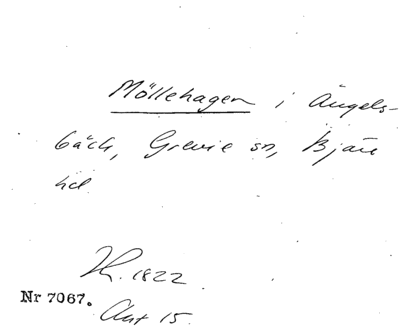 Möllehagen i Ängels-
bäck, Grevie sn, Bjäre
hd
1822
Nr 7067.
Akt 15.